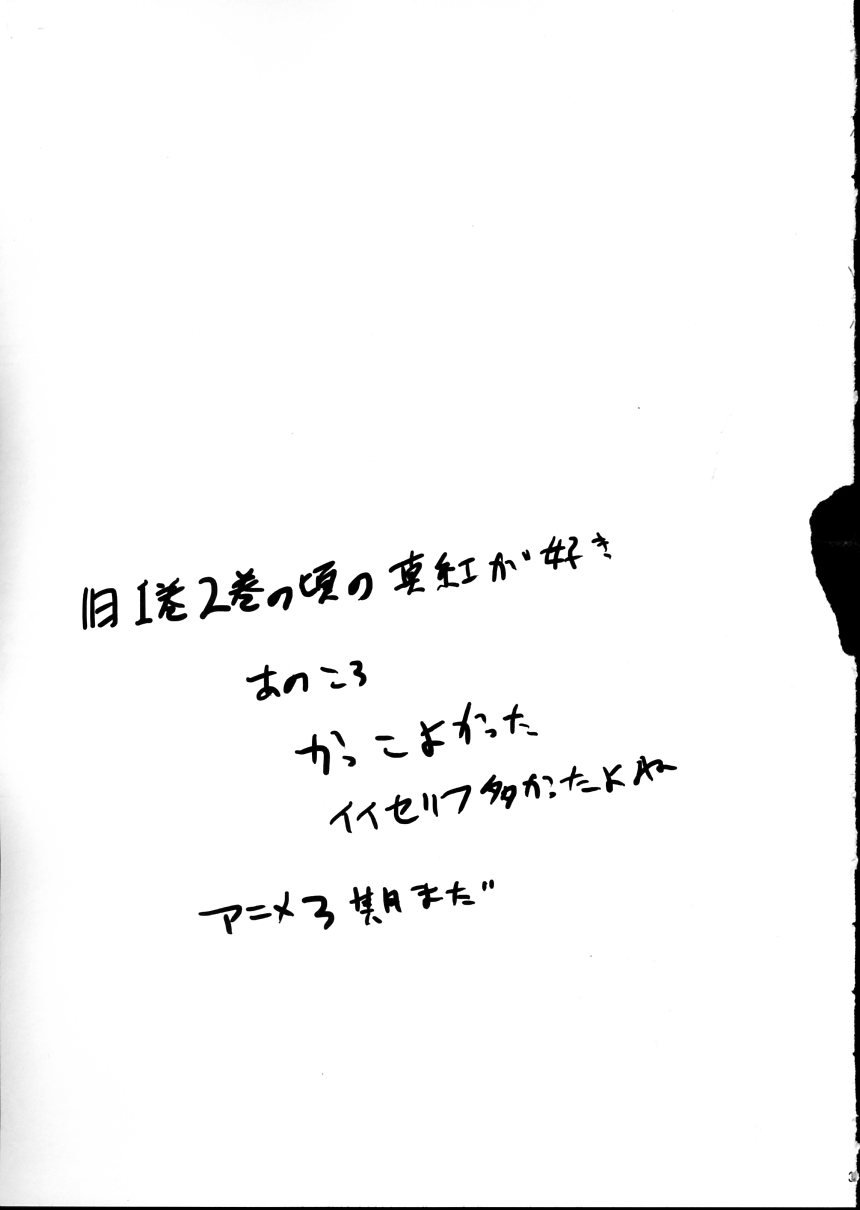 旧1巻2巻の頃の真紅が好き
あのころ
かっこよかった
イイセリフ多かったよね
アニメ3期まだ"
3